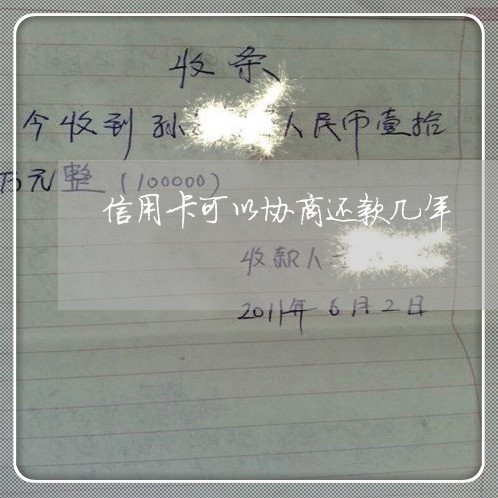 收条
今收到孙 人民币壹拾
万元整(100000)
信用卡可以协商还款几年
收款人
2011年6月2日